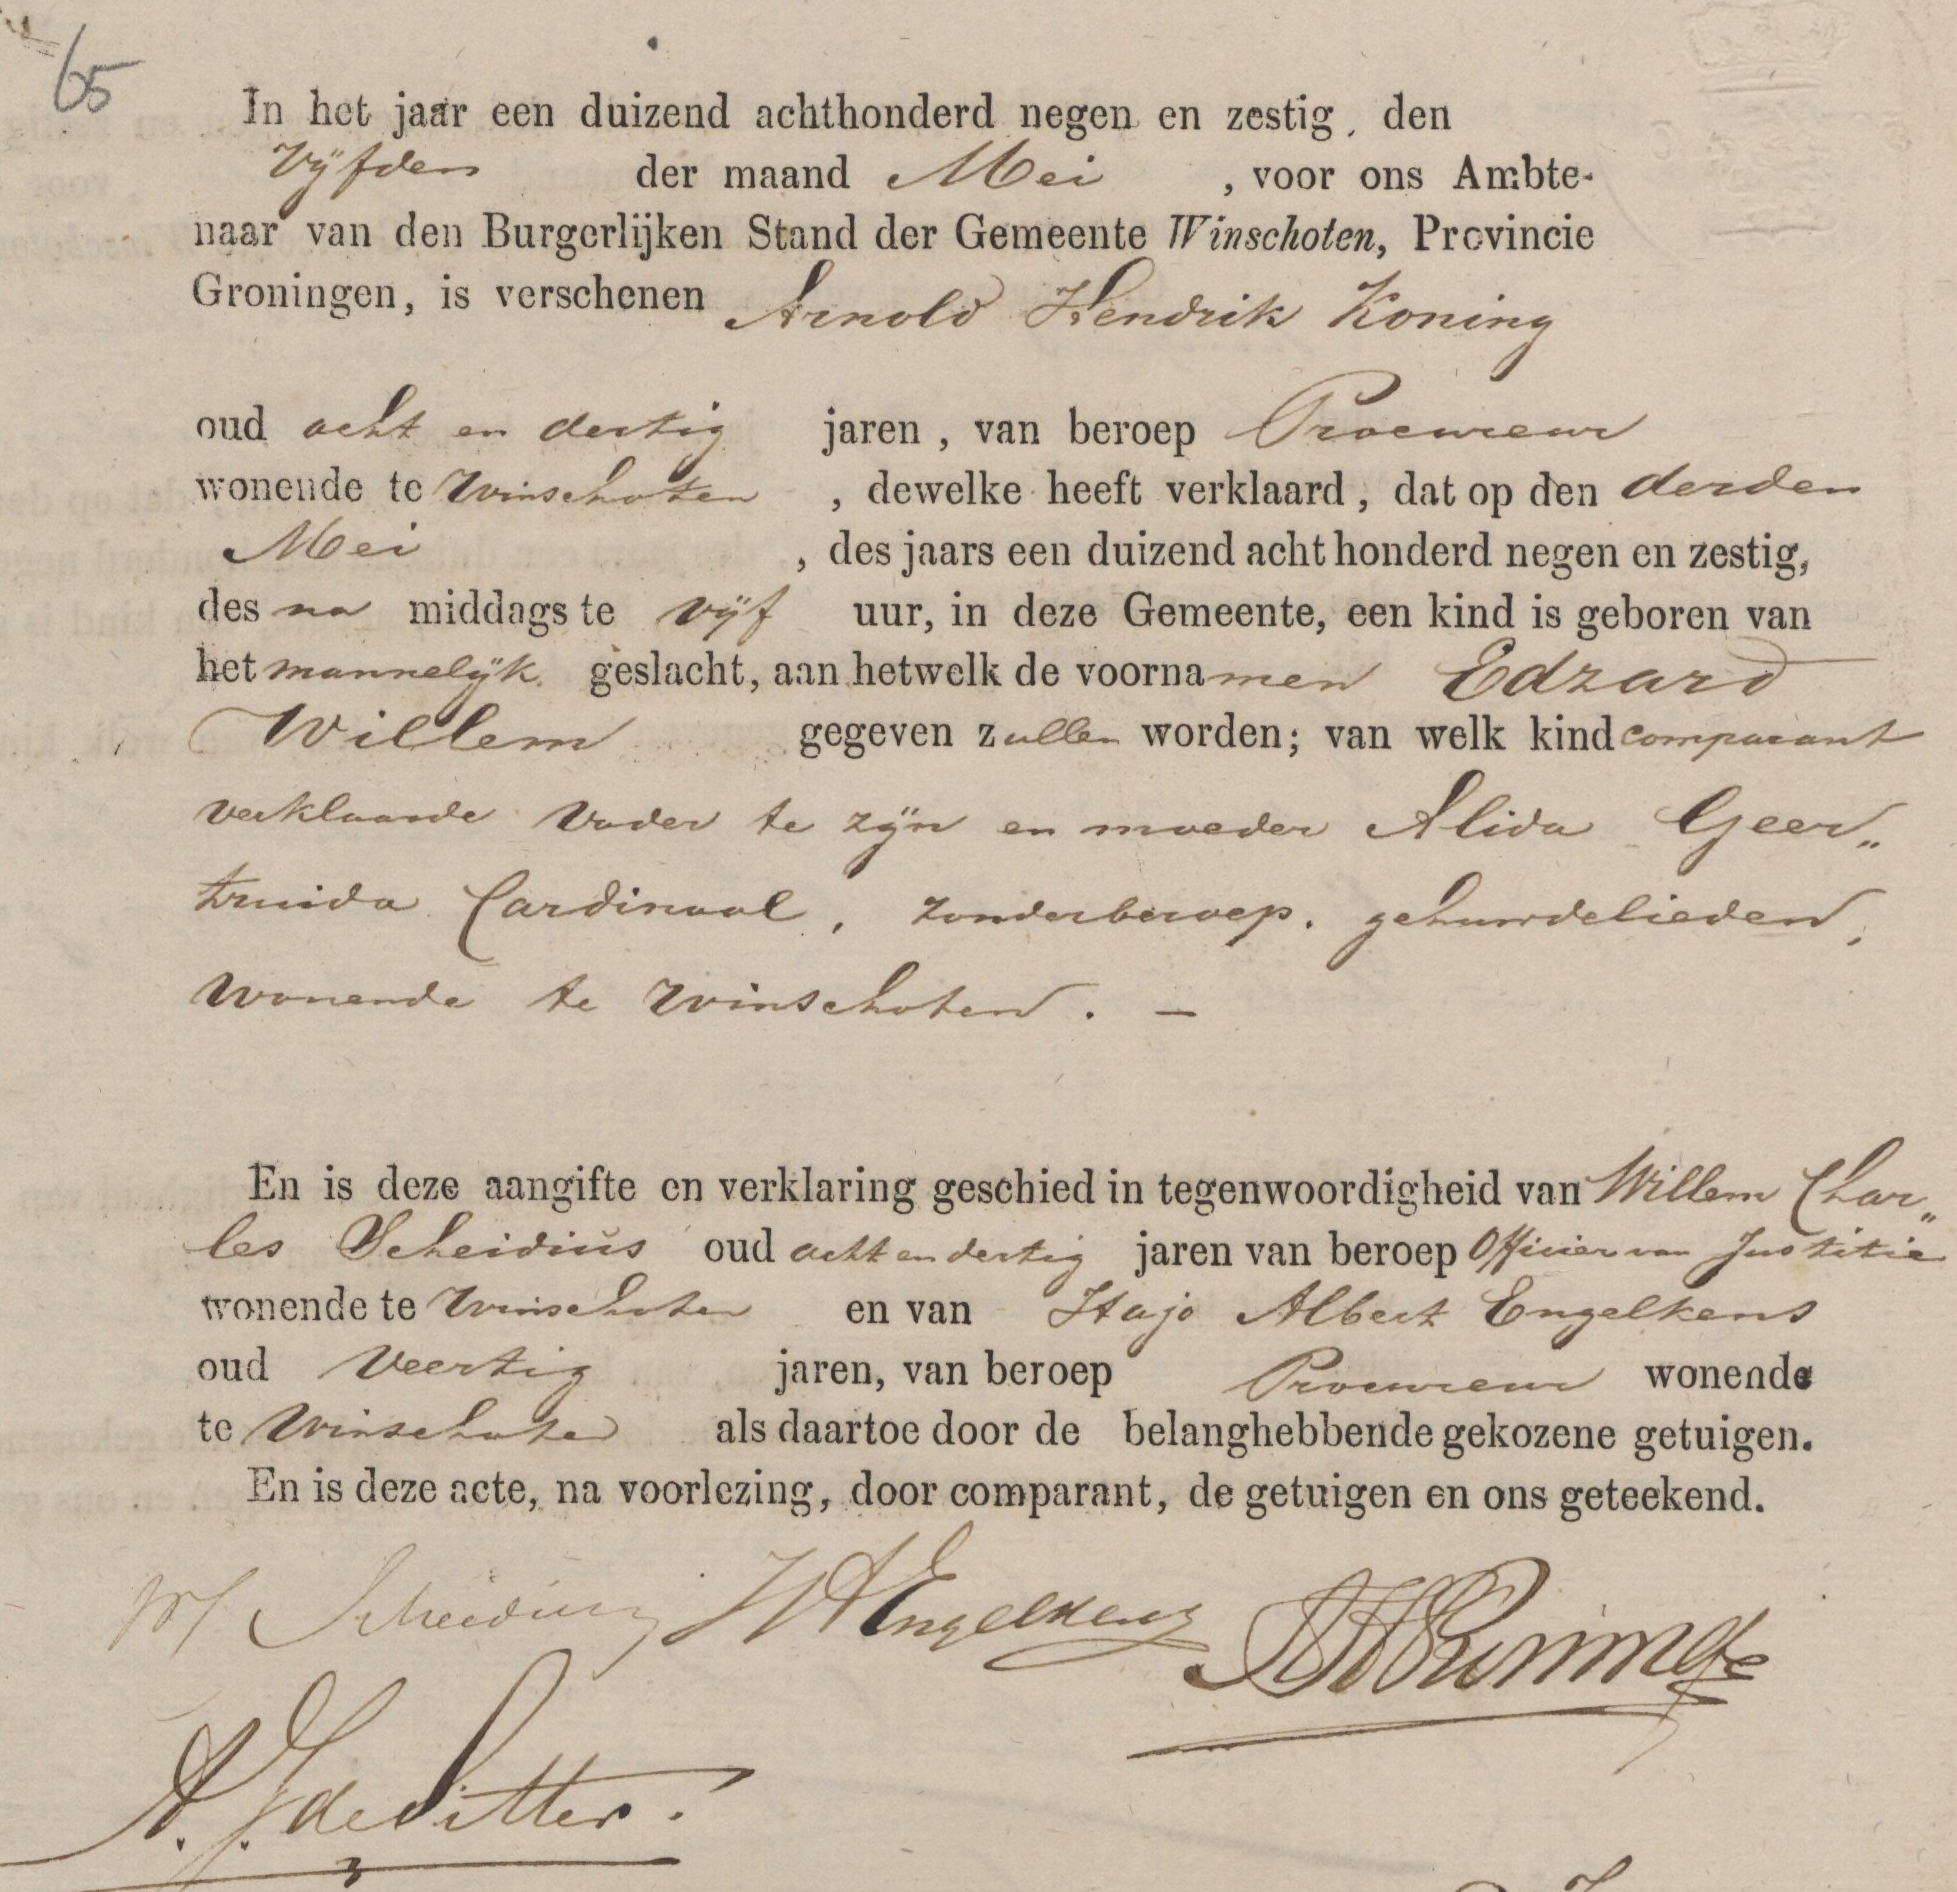 65
In het jaar een duizend achthonderd negen en zestig, den
Vijfden der maand Mei , voor ons Ambte-
naar van den Burgerlijken Stand der Gemeente Winschoten, Provincie
Groningen, is verschenen Arnold Hendrik Koning
oud acht en dertig jaren, van beroep Procureur
wonende te Winschoten , dewelke heeft verklaard, dat op den derden
Mei , des jaars een duizend acht honderd negen en zestig,
des na middags te vijf uur, in deze Gemeente, een kind is geboren van
het mannelijk geslacht, aan hetwelk de voornamen Edzard
Willem gegeven zullen worden; van welk kind comparant
verklaarde vader te zijn en moeder Alida Geer„
truida Cardinaal, zonder beroep, gehuwdelieden,
wonende te Winschoten. —
En is deze aangifte en verklaring geschied in tegenwoordigheid van Willem Char„
les Scheidius oud acht en dertig jaren van beroep Officier van Justitie
wonende te Winschoten en van Hajo Albert Engelkens
oud Veertig jaren, van beroep Procureur wonende
te Winschoten als daartoe door de belanghebbende gekozene getuigen.
En is deze acte, na voorlezing, door comparant, de getuigen en ons geteekend.
Scheidius HAEngelkens AHKoning
A. J. de Sitter.